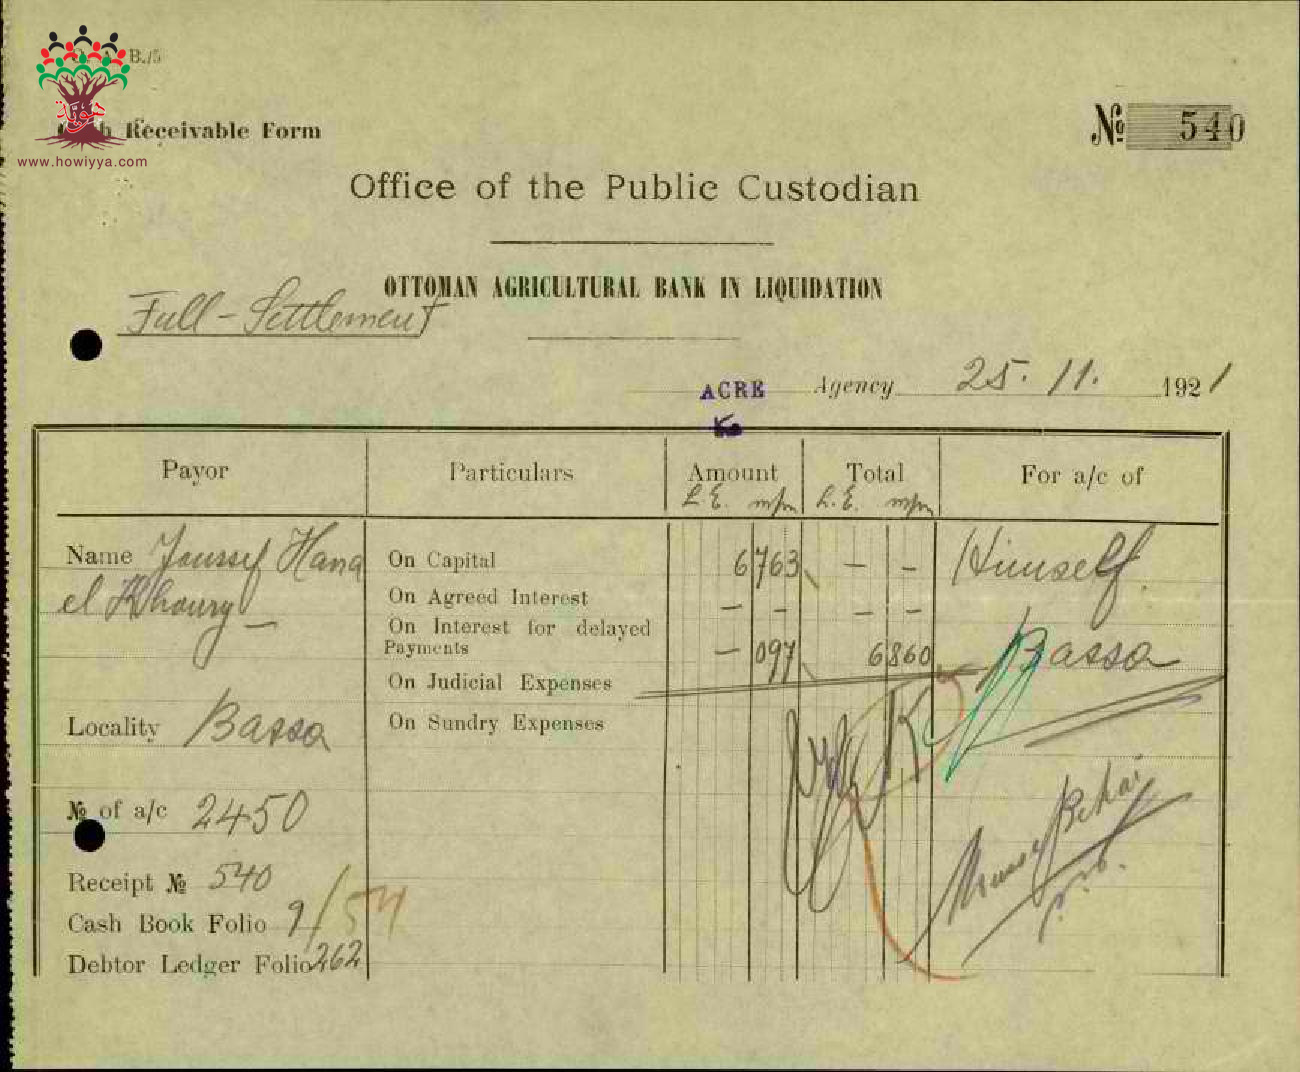 B./5
Receivable Form
www.howiyya.com
№ 540
Office of the Public Custodian
OTTOMAN AGRICULTURAL BANK IN LIQUIDATION
Full-Settlement
ACRE Agency 25. 11. 1921
Payor Particulars Amount Total For a/c of
L.E. m/m L.E. m/m
Name Youssef Hana On Capital 6 763 — — Himself
el Khoury — On Agreed Interest — — — —
On Interest for delayed
Payments — 097 6 860 Bassa
On Judicial Expenses
Locality Bassa On Sundry Expenses
№ of a/c 2450
Receipt № 540
Cash Book Folio 9/54
Debtor Ledger Folio 262